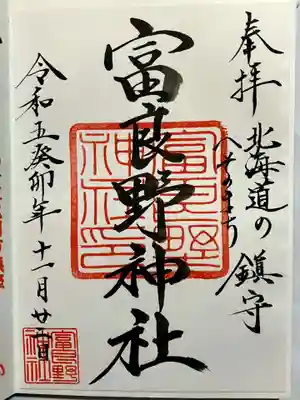 奉拝
北海道の
へそのまもり
鎮守
富良野神社
富良野
神社印
令和五癸卯年十一月廿三日
富良野
神社